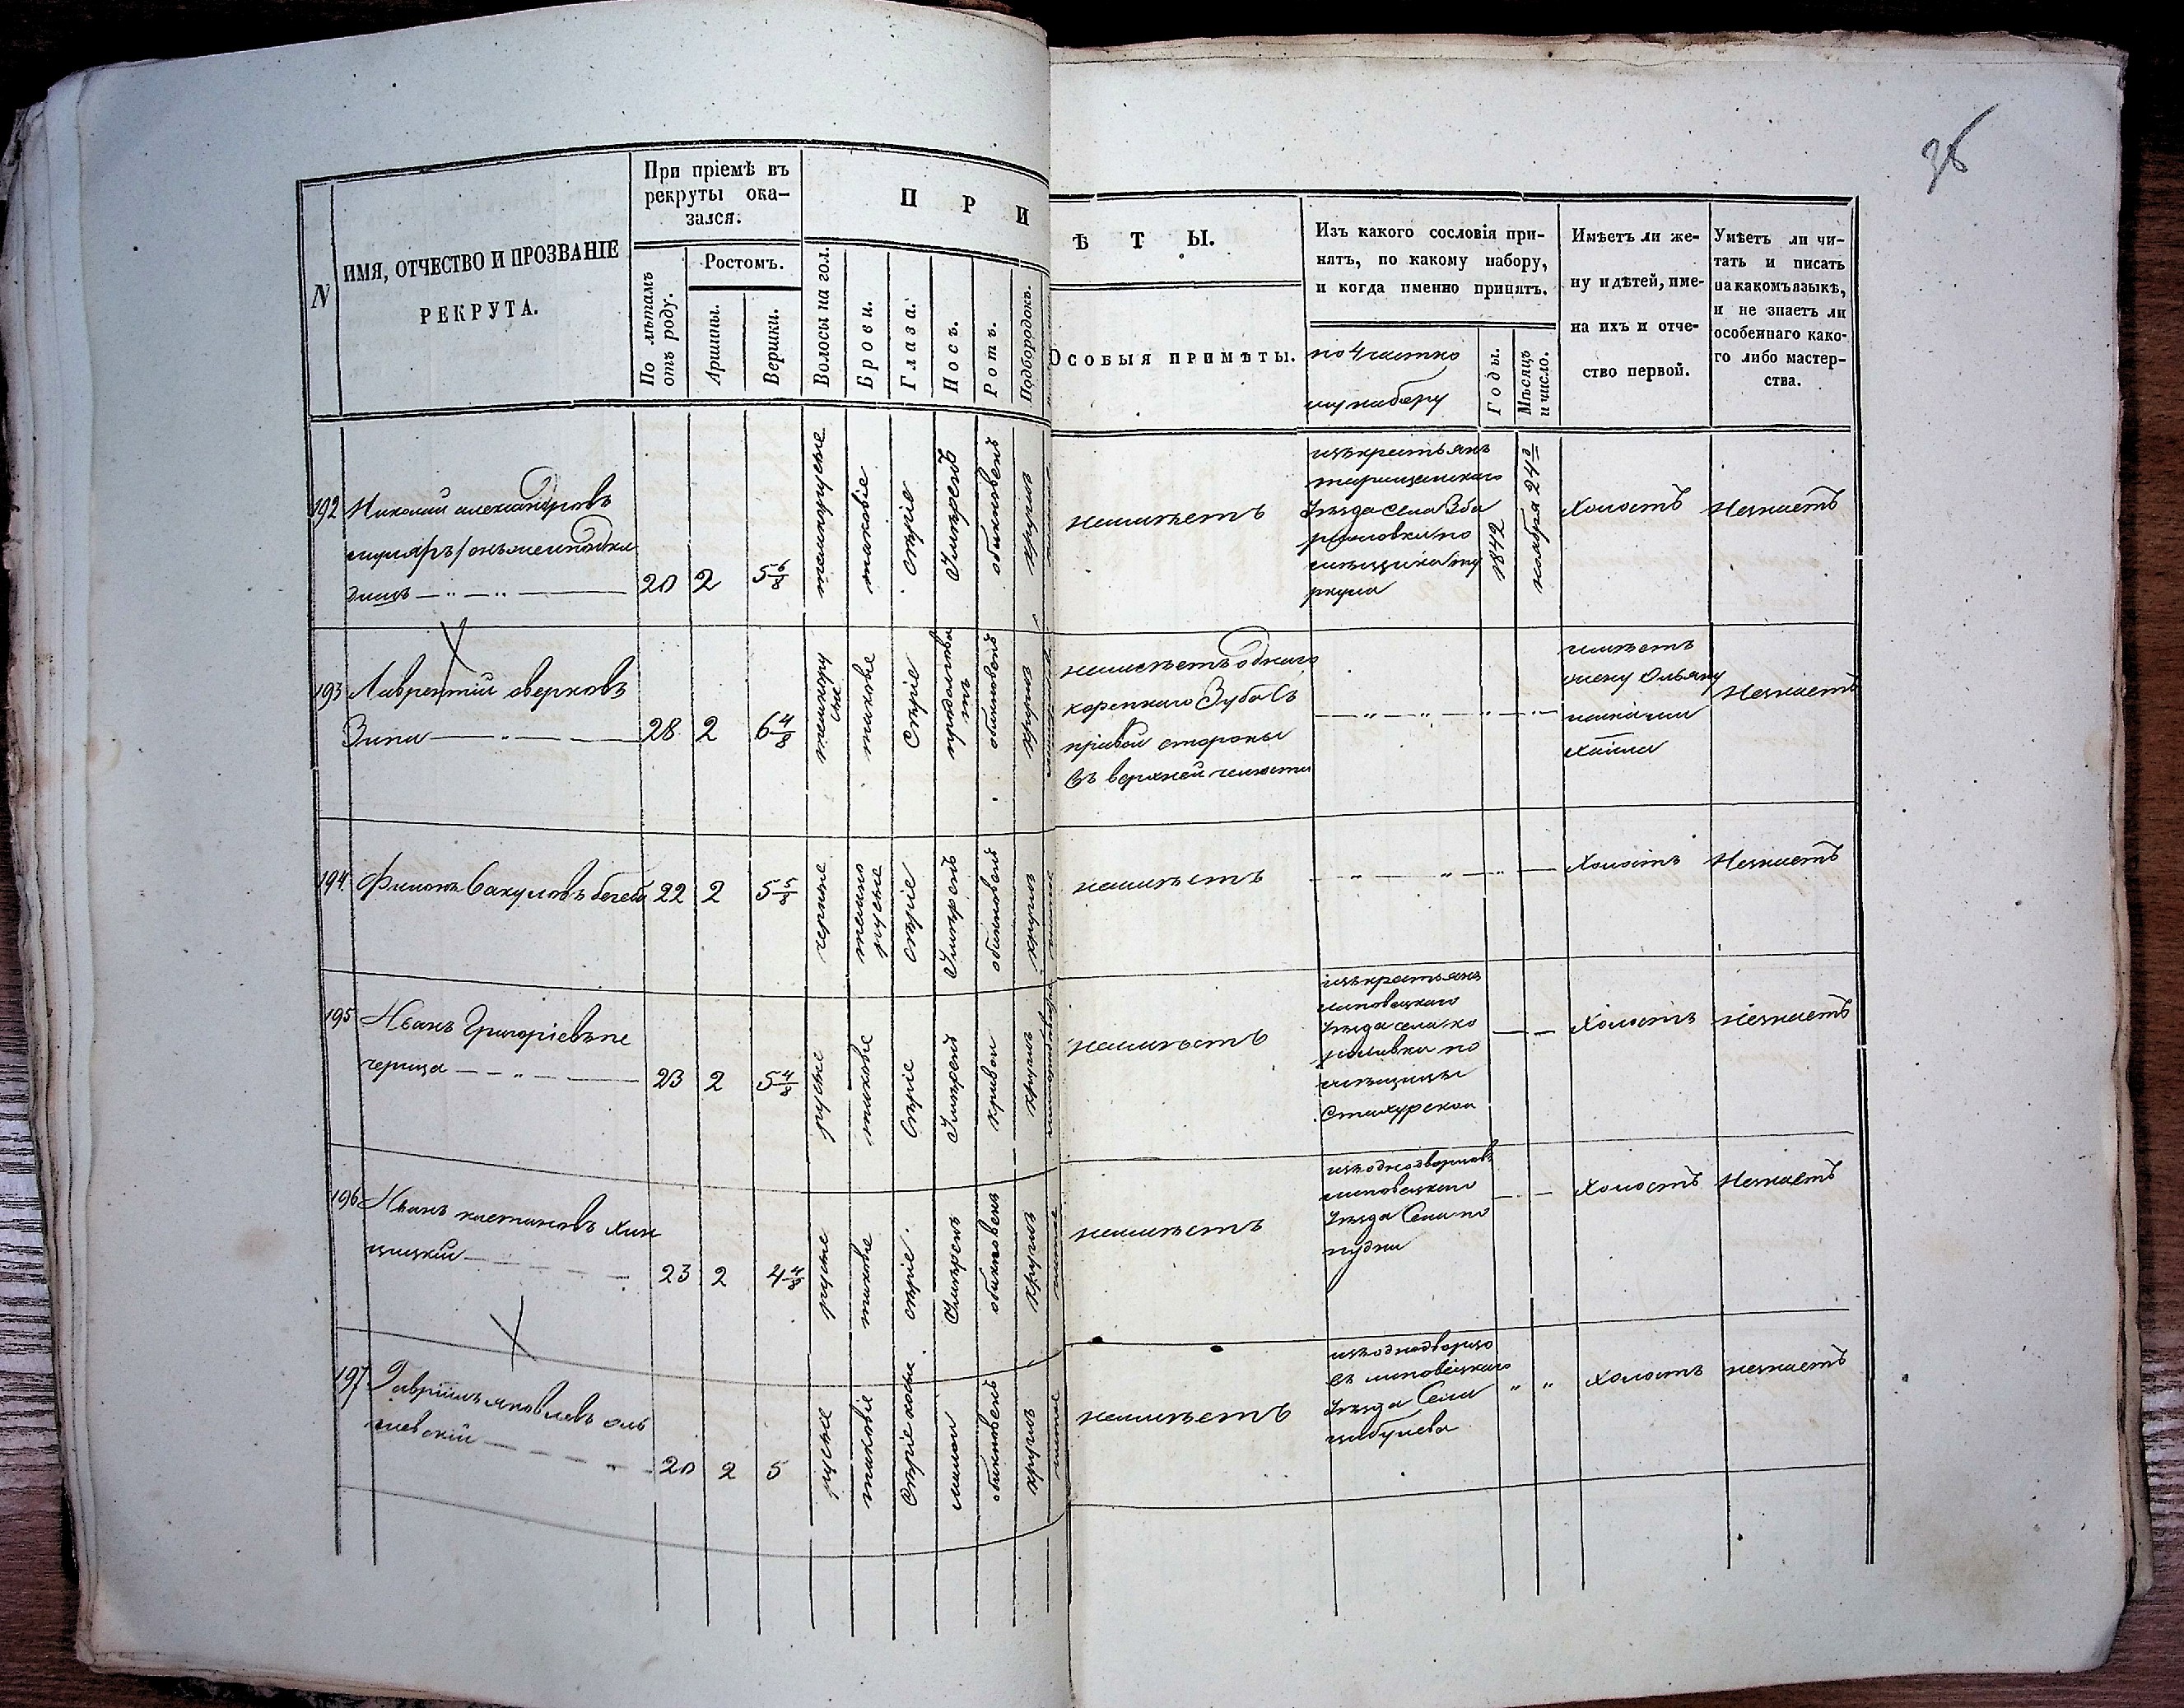 36
N
ИМЯ, ОТЧЕСТВО И ПРОЗВАНІЕ
РЕКРУТА.
При пріемѣ въ
рекруты ока-
зался.
По лѣтамъ
отъ роду.
Ростомъ.
Аршины.
Вершки.
П Р И
Волосы на гол.
Брови.
Глаза.
Носъ.
Ротъ.
Подбородокъ.
Ѣ Т Ы.
Особыя примѣты.
Изъ какого сословія при-
нятъ, по какому набору,
и когда именно принятъ.
по частно
му набору
Годы.
Мѣсяцъ
и число.
Имѣетъ ли же-
ну и дѣтей, име-
на ихъ и отче-
ство первой.
Умѣетъ ли чи-
тать и писать
на какомъ языкѣ,
и не знаетъ ли
особеннаго како-
го либо мастер-
ства.
192
Николай александровъ
20 2 5 6/8
темнорусые
таковіе
сѣріе
Умѣренъ
обикновенъ
круглъ
неимѣетъ
изъ крестьянъ
таращанскаго
Уѣзда села
1842
ноября 24
Холостъ
Незнаетъ
193
Лаврентій оверковъ
Зипа
28 2 6 4/8
темнору
сые
таковые
Сѣріе
продолгова
тъ
обикновенъ
круглъ
неимѣетъ одного
коренного Зуба съ
правой стороны
въ верхней челюсти
имѣетъ
жену
Незнаетъ
194
Филонъ Вакуловъ
22 2 5 5/8
черные
темно
русые
сѣріе
Умѣренъ
обикновенъ
круглъ
неимѣетъ
Холостъ
Незнаетъ
195
Иванъ Григоріевъ пе
черица
23 2 5 4/8
русые
таковіе
Сѣріе
Умѣренъ
кривой
круглъ
неимѣетъ
изъ крестьянъ
липовецкаго
Уѣзда села ко
по
мѣщицы
Стахурской
Холостъ
незнаетъ
196
Иванъ
23 2 4 4/8
русые
таковые
сѣріе
Умѣренъ
обикновенъ
круглъ
неимѣетъ
изъ однодворцовъ
липовецкаго
Уѣзда Села по
пудни
Холостъ
Незнаетъ
197
Гавріилъ яковлевъ оль
шевскій
20 2 5
русые
таковіе
Сѣріе
малой
обикновенъ
круглъ
неимѣетъ
изъ однодворцо
въ липовецкаго
Уѣзда Села
цибулева
Холостъ
незнаетъ